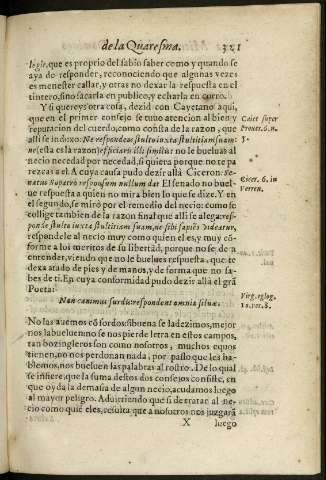 de la Quaresma. 321
logie, que es proprio del sabio saber como y quando se
aya de responder, reconociendo que algunas vezes
es menester callar, y otras no dexar la respuesta en el
tintero, sino sacarla en publico, y echarla en corro.
Y si quereys otra cosa, dezid con Cayetano aqui,
que en el primer consejo se tuuo atencion al bien y
reputacion del cuerdo, como consta de la razon, que
alli se induxo: Ne respondeas stulto iuxta stultitiam suam:
ne (esta es la razon) efficiaris illi similis: no le buelvas al
necio necedad por necedad, si quiera porque no te pa
rezcas a el. A cuya causa pudo dezir alla Ciceron. Se-
natus Nupero responsum nullum dat El senado no buel
ue respuesta a quien no mira bien lo que se dize. Y en
el segundo, se miró por el remedio del necio: como se
collige tambien de la razon final que alli se alega: res-
ponde stulto iuxta stultitiam suam, ne sibi sapiēs videatur,
respondele al necio muy como quien el es, y muy cō-
forme a los meritos de su libertad, porque no se dè a
entender, viendo que no le buelues respuesta, que te
dexa atado de pies y de manos, y de forma que no sa-
bes de ti. En cuya conformidad pudo dezir allá el grā
Poeta:
Non canimus surdis: respondent omnia siluæ.
No las auemos cō sordos: si buena se la dezimos, mejor
nos la bueluen: no se nos pierde letra en estos campos,
tan bozingleros son como nosotros, muchos equos
tienen, no nos perdonan nada, por passo que les ha-
blemos, nos bueluen las palabras al rostro. De lo qual
se infiere, que la suma destos dos consejos consiste, en
que oyda la demasia de algun necio, acudamos luego
al mayor peligro. Aduirtiendo que si de tratar al ne-
cio como quiē el es, resulta que a nosotros nos juzgarà
X luego
Caiet super
Prouer. 6. n.
5.
Cicer. 6. in
Verren.
Virg. eglog.
10. ver. 8.